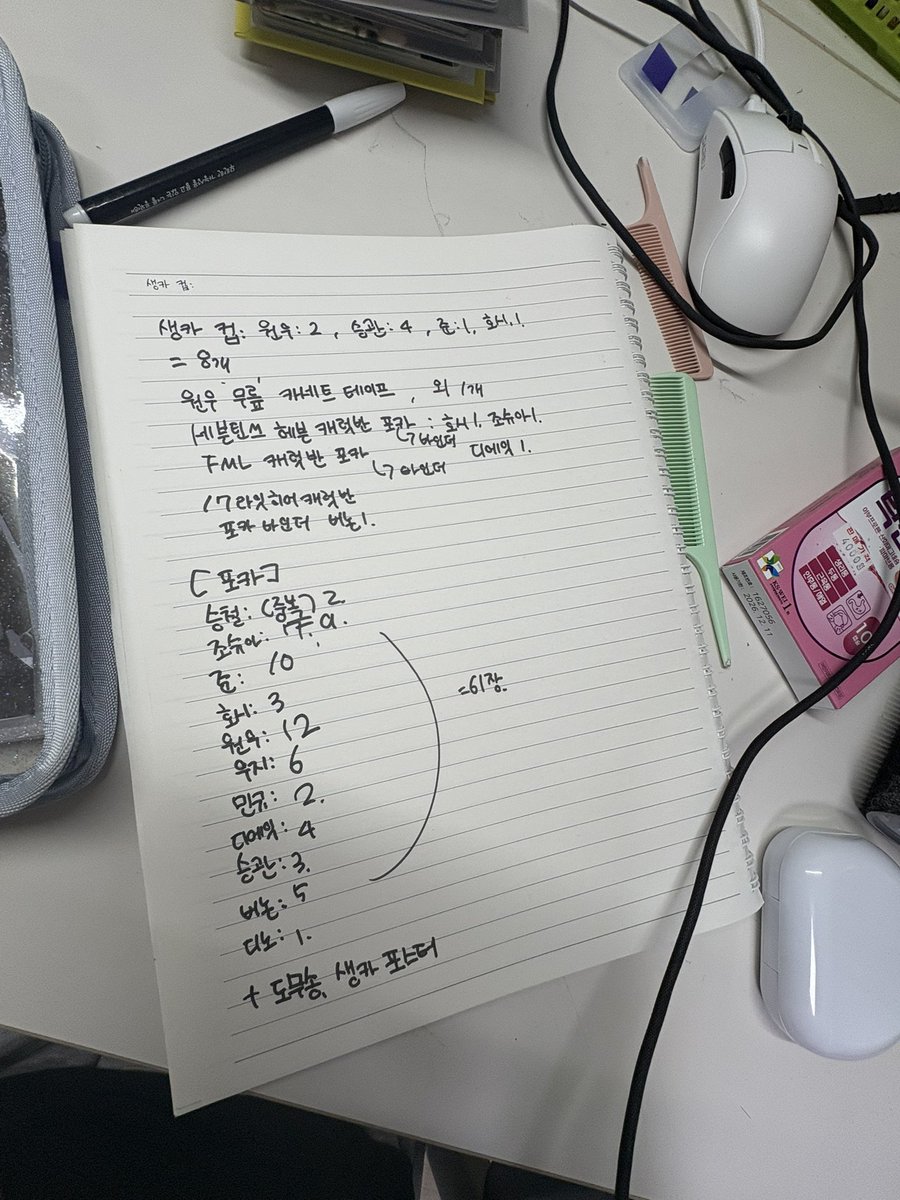 생카 컵:
생카 컵: 원우: 2, 승관: 4, 준: 1, 호시. 1.
= 8개
원우 무릎 카세트 테이프, 외 1개
세븐틴쓰 헤븐 캐럿반 포카 : 호시 1. 조슈아 1.
↳ 바인더
FML 캐럿반 포카 디에잇 1.
↳ 바인더
17 라잇히어 캐럿반
포카 바인더 버논 1.
[포카]
승철: (중복) 2.
조슈아:
준: 10
호시: 3
원우: 12
우지: 6
민규: 2.
디에잇: 4
승관: 3.
버논: 5
디노: 1.
=61장.
+ 도무송, 생카 포스터
판매가격
4000원
생리통
두통
근육통
1627056
2026. 12. 11
10